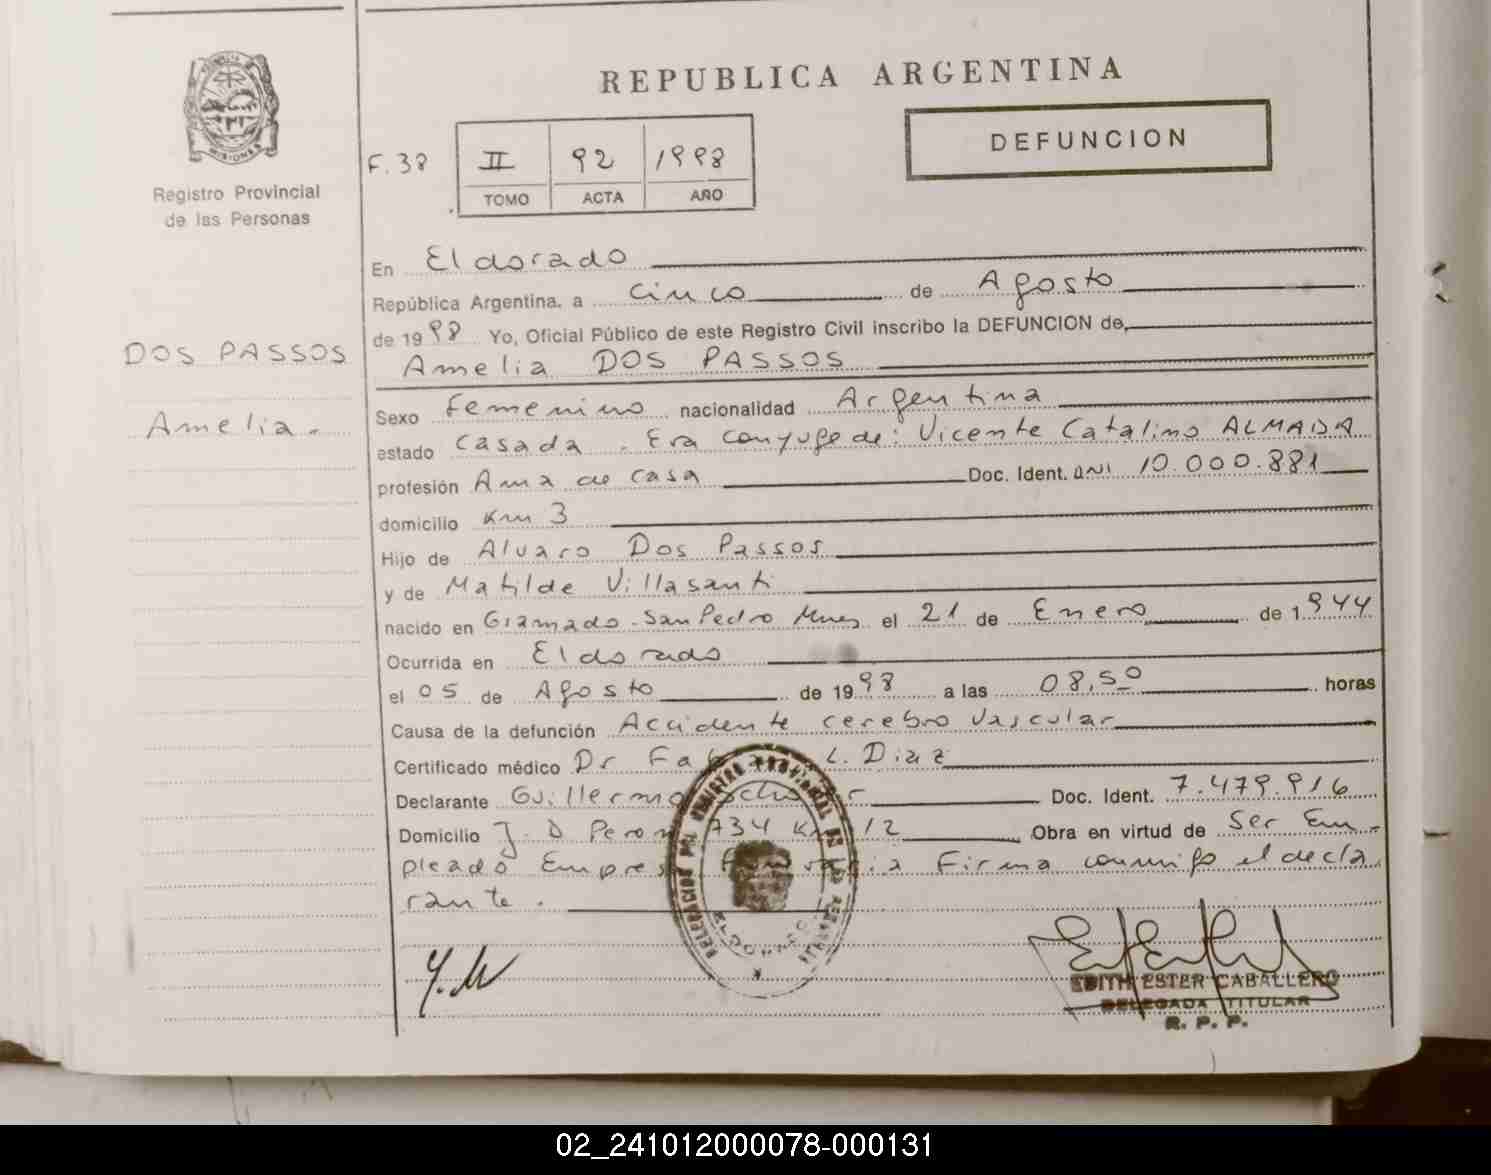 REPUBLICA ARGENTINA
DEFUNCION
MISIONES
Registro Provincial
de las Personas
F. 38
II 92 1998
TOMO ACTA AÑO
DOS PASSOS
Amelia.
En Eldorado
República Argentina, a cinco de Agosto
de 1998 Yo, Oficial Público de este Registro Civil inscribo la DEFUNCION de,
Amelia DOS PASSOS
Sexo Femenino nacionalidad Argentina
estado Casada. Era conyuge de: Vicente Catalino ALMADA
profesión Ama de casa Doc. Ident. DNI 10.000.881
domicilio Km 3
Hijo de Alvaro Dos Passos
y de Matilde Villasanti
nacido en Gramado - San Pedro Mnes el 21 de Enero de 1944
Ocurrida en Eldorado
el 05 de Agosto de 1998 a las 08,50 horas
Causa de la defunción Accidente cerebro vascular
Certificado médico Dr L. Diaz
Declarante Guillermo Doc. Ident. 7.479.916
Domicilio J. D Peron 734 Km 12 Obra en virtud de ser Em-
pleado Empresa Firma conmigo el decla
rante.
DELEGACION DEL REGISTRO PROVINCIAL DE LAS PERSONAS
ELDORADO
EDITH ESTER CABALLERO
DELEGADA TITULAR
R. P. P.
02_241012000078-000131